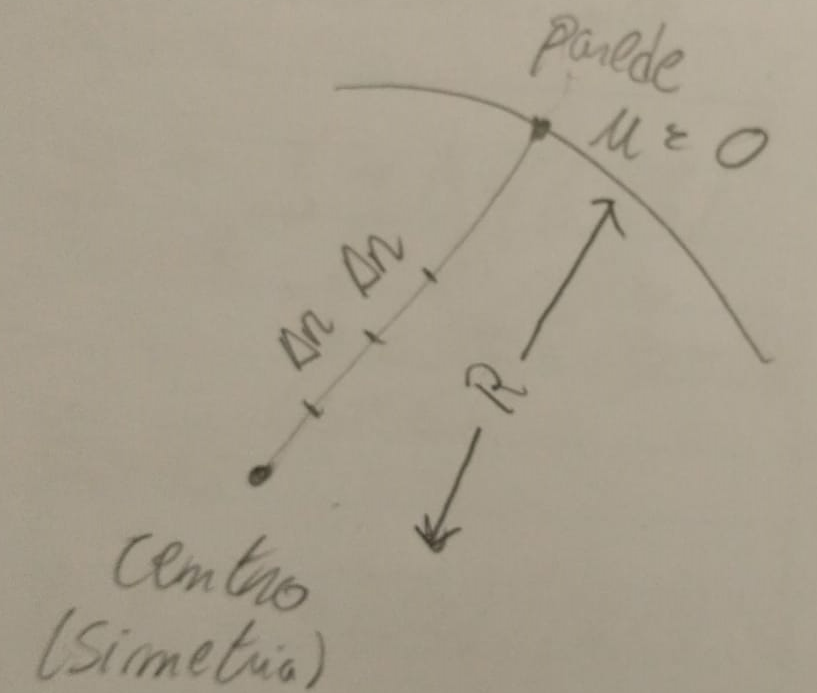 parede
u = 0
Δr
Δr
R
centro
(simetria)